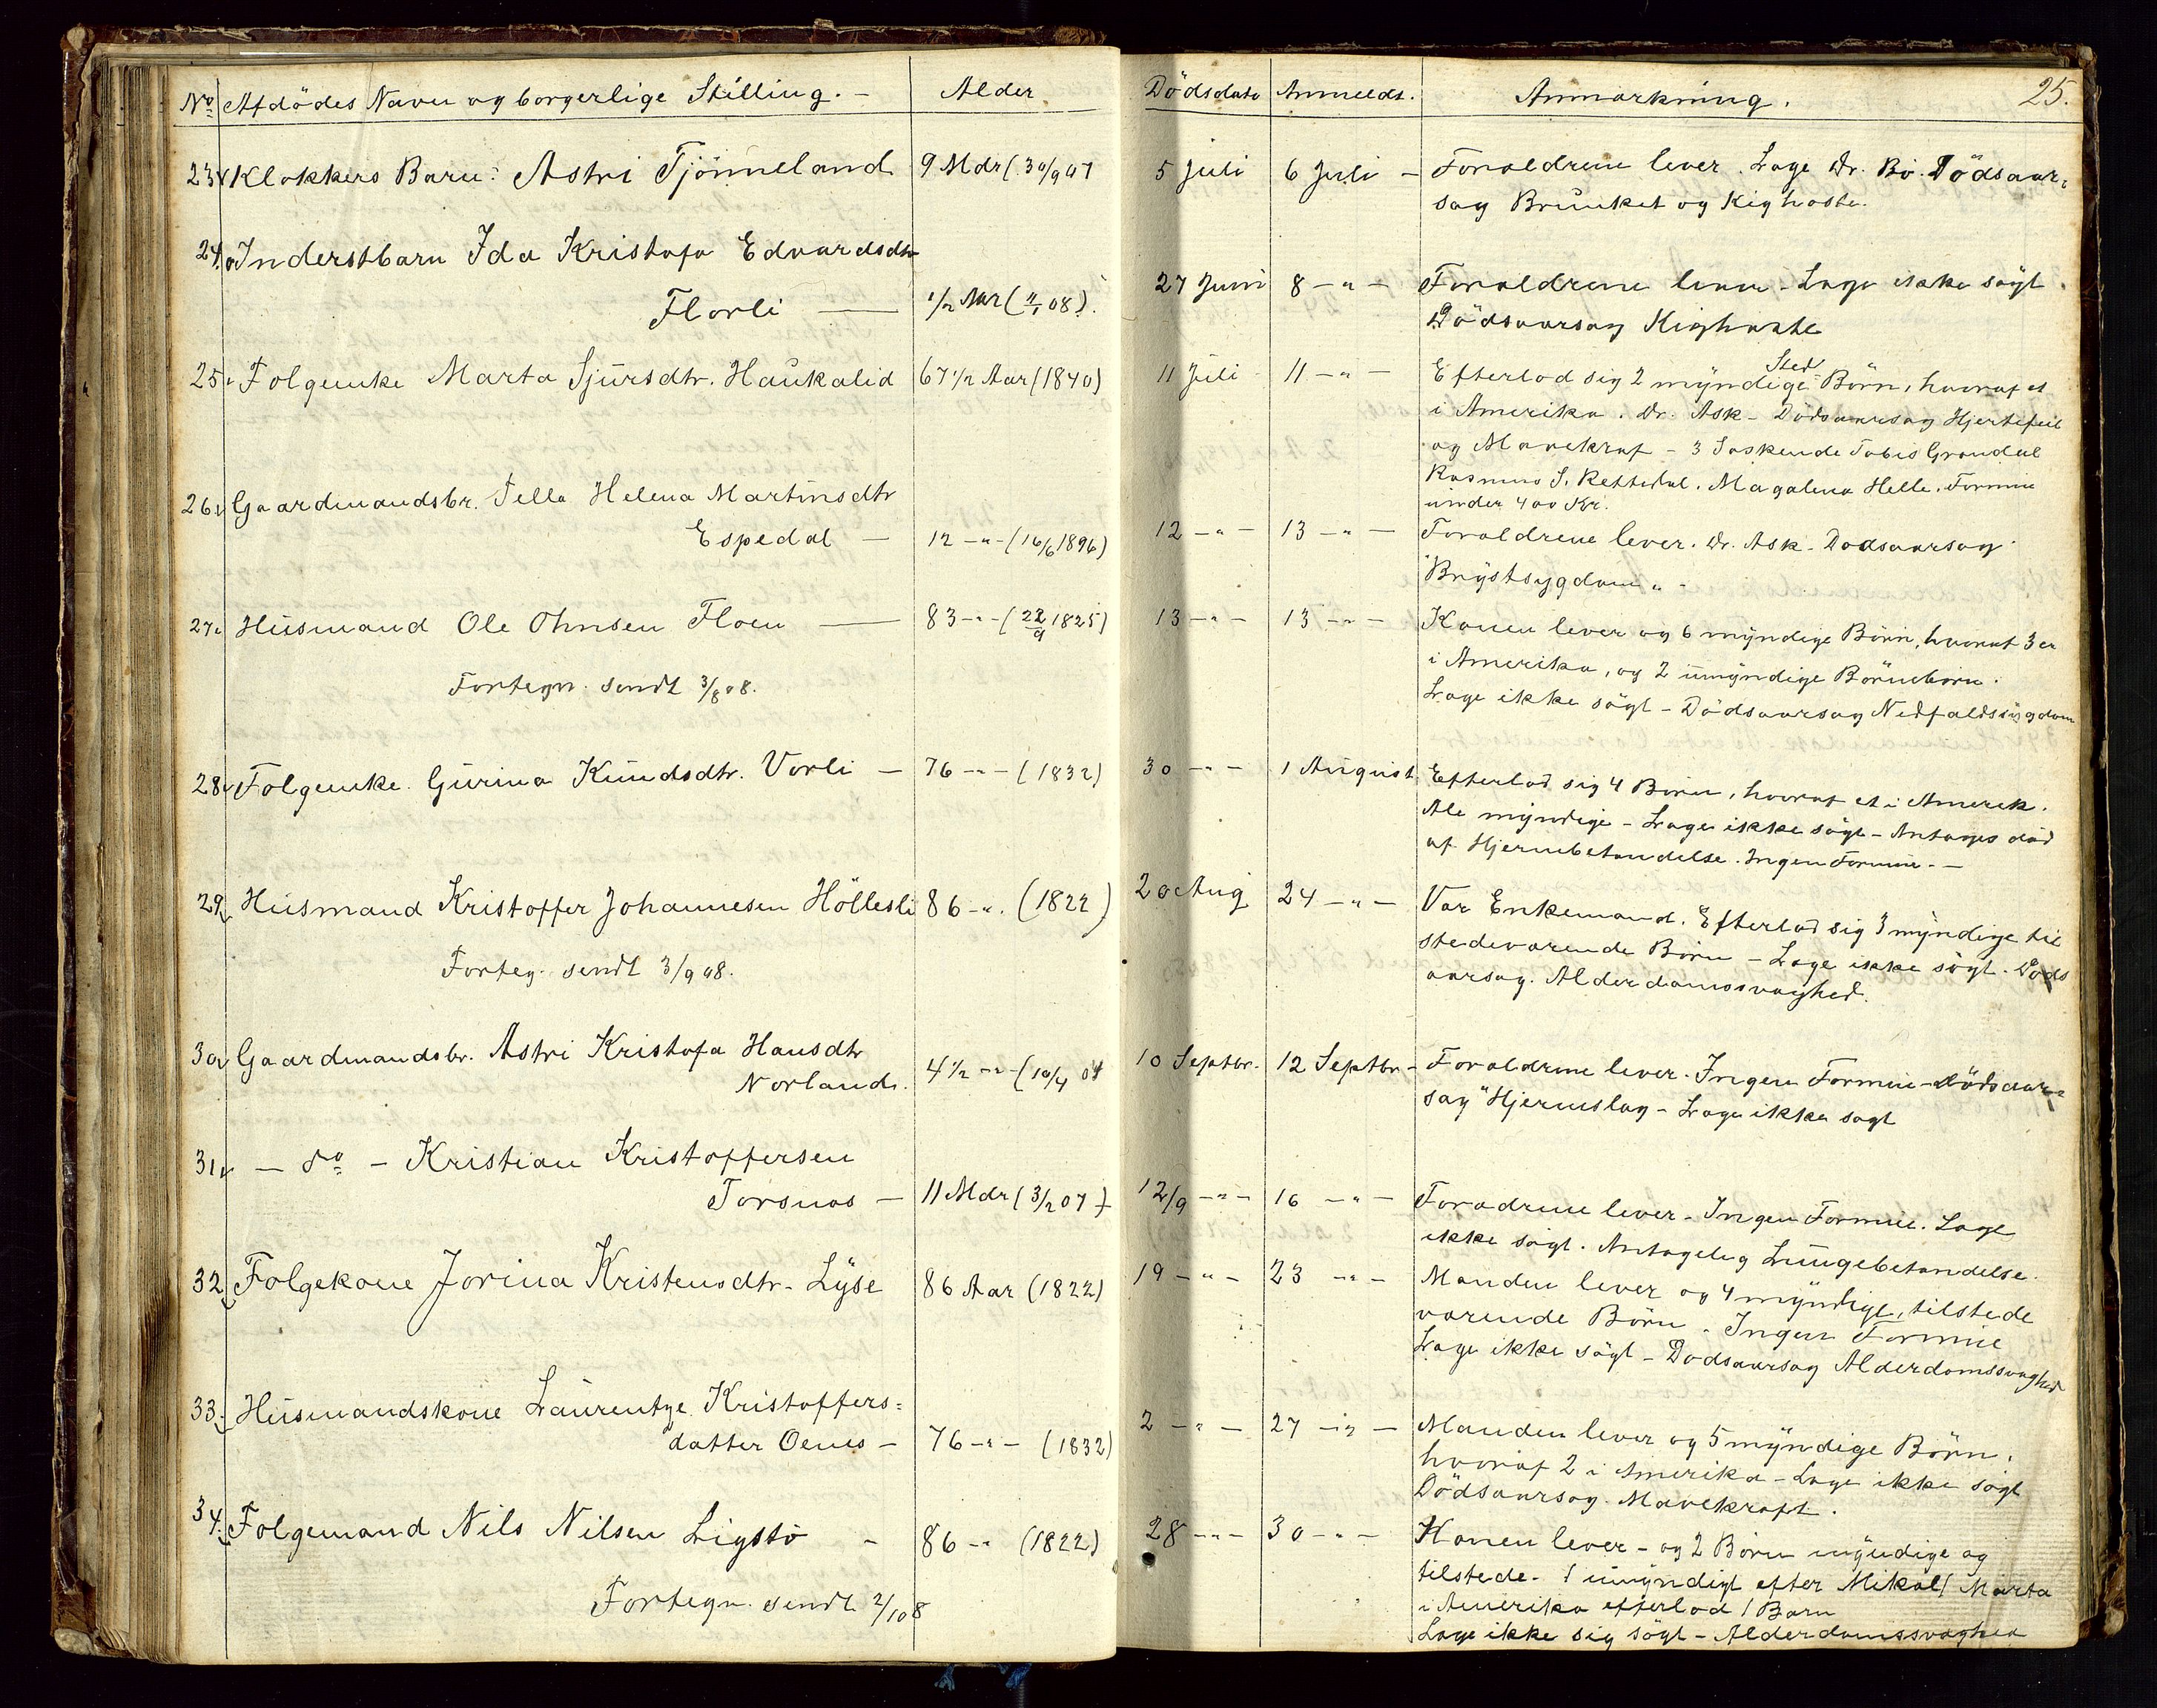 No Afdödes Navn og borgerlige Stilling. - Alder Dödsdato Anmeldt. Anmærkning. 25.
23 Klokkers Barn: Astri Tjömeland 9 Mdr (30/9 07 5 Juli 6 Juli - Forældrene lever. Læge Dr. Bö. Dödsaar-
sag Brunket og Kighoste.
24. Inderstbarn Ida Kristofa Edvardsdtr
Florli 1/2 Aar (4/1 08). 27 Juni 8 - " - Forældrene lever - Læge ikke sögt.
Dödsaarsag Kighoste
25. Folgeenke Marta Sjursdtr. Haukalid 67 1/2 Aar (1840) 11 Juli 11 - " - Efterlod sig 2 myndige Sted Börn, hvoraf et
i Amerika. Dr. Ask - Dödsaarsag Hjertefeil
og Mavekræf - 3 Söskende Tobis Grøndal
Rasmus S. Rettedal. Magalena Helle. Formue
under 400 Kr.
26. Gaardmandsbr. Tella Helena Martinsdtr
Espedal - 12 - " - (16/6 1896) 12 - " - 13 - " - Forældrene lever. Dr. Ask - Dodsaarsag
Brystsygdom " -
27. Husmand Ole Ohnsen Floen 83 - " - (22/9 1825) 13 - " - 13 - " - Konen lever og 6 myndige Börn, hvoraf 3 er
i Amerika, og 2 umyndige Börneborn.
Læge ikke sögt - Dödsaarsag Nedfaldssygdom
Fortegn. sendt 3/8 08.
28. Folgeenke. Gurina Knudsdtr. Vorli - 76 - " - (1832) 30 - " - 1 August Efterlod sig 4 Börn, hvoraf et i Amerik.
Ale myndige - Læge ikke sögt - Antages död
af Hjernebetændelse. Ingen Formue. -
29. Husmand Kristoffer Johannesen Höllesli 86 - ". (1822) 20 Aug 24 - " - Var Enkemand. Efterlod sig 3 myndige til
stedeværende Börn - Læge ikke sögt. Döds
aarsag. Alderdomssvaghed.
Forteg. sendt 3/9 08.
30. Gaardmandsbr. Astri Kristofa Hansdtr
Norland. 4 1/2 - " - (10/4 04 10 Septbr. 12 Septbr. - Forældrene lever - Ingen Formue - Dödsaar-
sag "Hjerneslag - Læge ikke sagt
31. - do - Kristian Kristoffersen
Torsnæs - 11 Mdr (3/2 07) 12/9 - " - 16 - " - Forædrene lever - Ingen Formue. Læge
ikke sögt. Antagelig Lungebetændelse.
32. Folgekone Jorina Kristensdtr - Lyse 86 Aar (1822) 19 - " - 23 - " - Manden lever og 4 myndige, tilstede
værende Börn. Ingen Formue
Læge ikke sögt - Dodsaarsag Alderdomssvaghed
33. Husmandskone Laurentze Kristoffers-
datter Oenes - 76 - " - (1832) 2 - " - 27 - " - Manden lever og 5 myndige Börn,
hvoraf 2 i Amerika - Læge ikke sögt
Dödsaarsag. Mavekræft.
34. Folgemand Nils Nilsen Ligstö - 86 - " (1822) 28 - " - 30 - " - Konen lever - og 2 Börn myndige og
tilstede - 1 umyndigt efter Mikal / Marta
i Amerika efterlod 1 Barn
Læge ikke sig sögt - Alderdomssvaghed
Fortegn. sendt 2/10 8